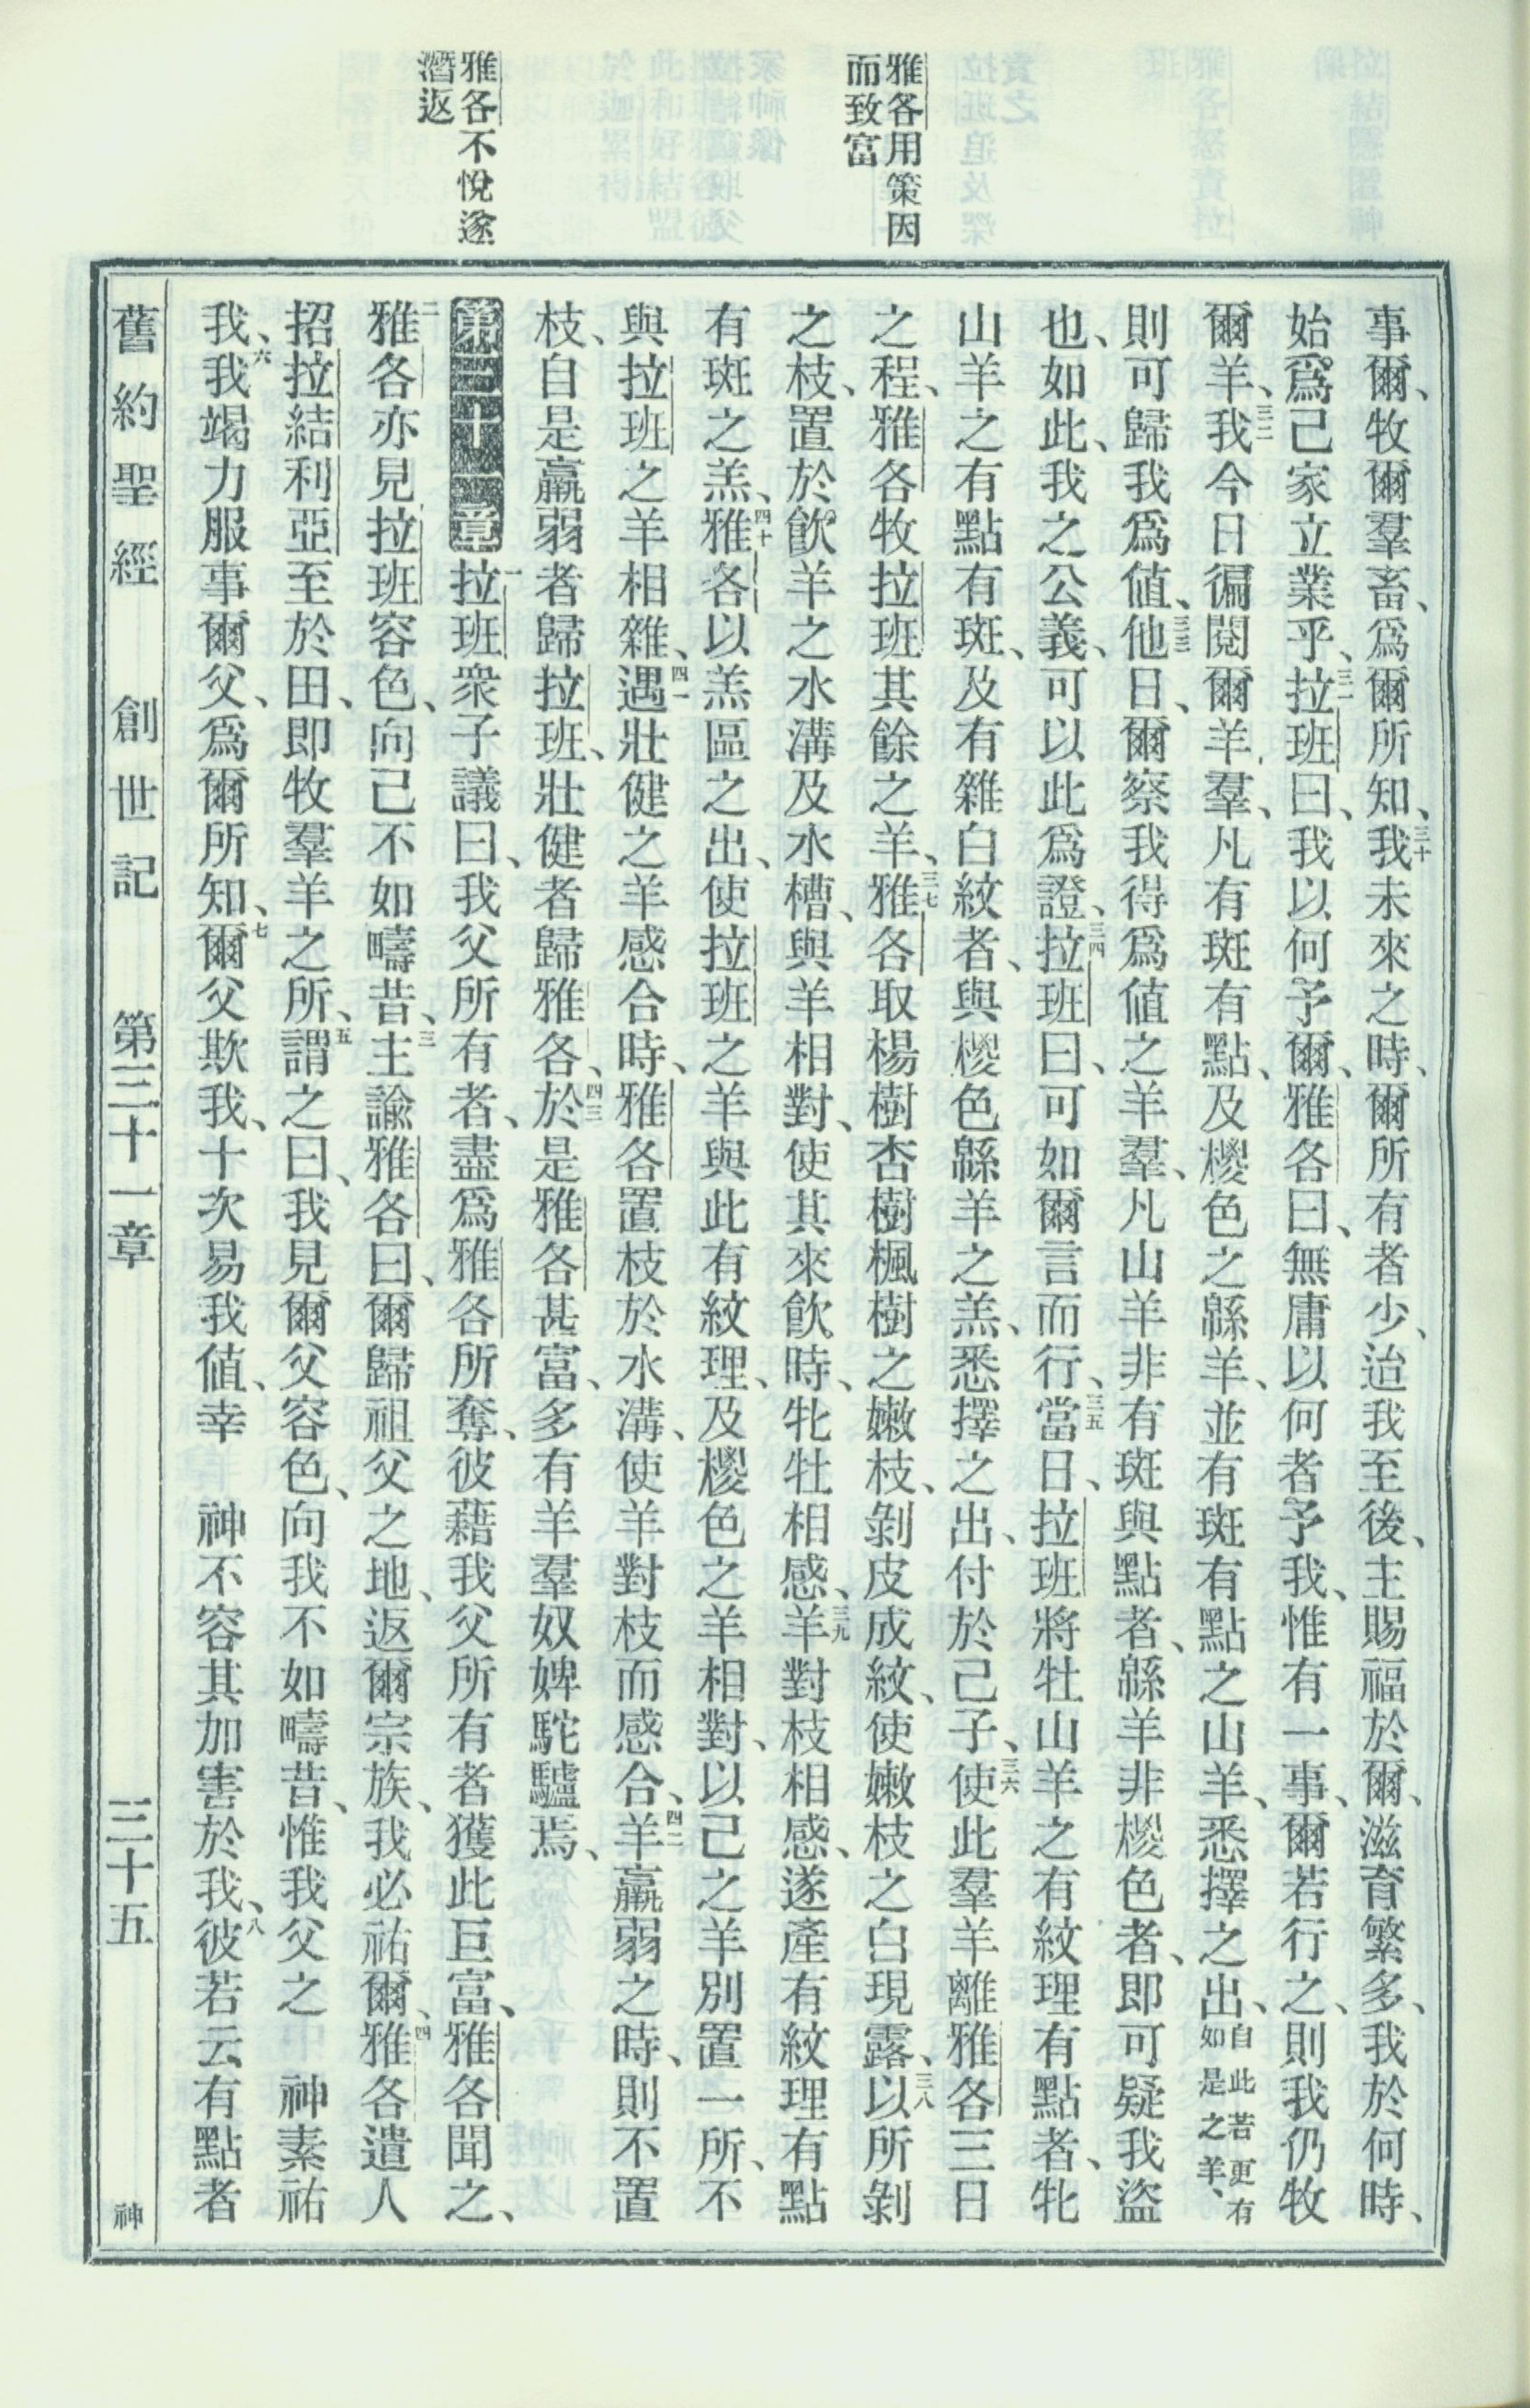 雅各用策因
而致富
雅各不悅遂
潛返
事爾、牧爾羣畜、爲爾所知、三十我未來之時、爾所有者少、迨我至後、主賜福於爾、滋育繁多、我於何時、
始爲己家立業乎、三一拉班曰、我以何予爾、雅各曰、無庸以何者予我、惟有一事、爾若行之、則我仍牧
爾羊、三二我今日徧閱爾羊羣、凡有斑有點、及椶色之緜羊、並有斑有點之山羊、悉擇之出、自此若更有如是之羊、
則可歸我爲値、三三他日、爾察我得爲値之羊羣、凡山羊非有斑與點者、緜羊非椶色者、即可疑我盜
也、如此、我之公義、可以此爲證、三四拉班曰、可如爾言而行、三五當日、拉班將牡山羊之有紋理有點者、牝
山羊之有點有斑、及有雜白紋者、與椶色緜羊之羔、悉擇之出、付於己子、三六使此羣羊離雅各三日
之程、雅各牧拉班其餘之羊、三七雅各取楊樹杏樹楓樹之嫩枝、剝皮成紋、使嫩枝之白現露、三八以所剝
之枝、置於飮羊之水溝及水槽、與羊相對、使其來飮時、牝牡相感、三九羊對枝相感、遂產有紋理有點
有斑之羔、四十雅各以羔區之出、使拉班之羊與此有紋理、及椶色之羊相對、以己之羊別置一所、不
與拉班之羊相雜、四一遇壯健之羊感合時、雅各置枝於水溝、使羊對枝而感合、四二羊羸弱之時、則不置
枝、自是羸弱者歸拉班、壯健者歸雅各、四三於是雅各甚富、多有羊羣奴婢駝驢焉、
第三十一章 一拉班衆子議曰、我父所有者、盡爲雅各所奪、彼藉我父所有者獲此巨富、雅各聞之、
二雅各亦見拉班容色、向己不如疇昔、三主諭雅各曰、爾歸祖父之地、返爾宗族、我必祐爾、四雅各遣人
招拉結利亞至於田、即牧羣羊之所、五謂之曰、我見爾父容色、向我不如疇昔、惟我父之 神素祐
我、六我竭力服事爾父、爲爾所知、七爾父欺我、十次易我値、幸 神不容其加害於我、八彼若云有點者
舊約聖經 創世記 第三十一章 三十五 神